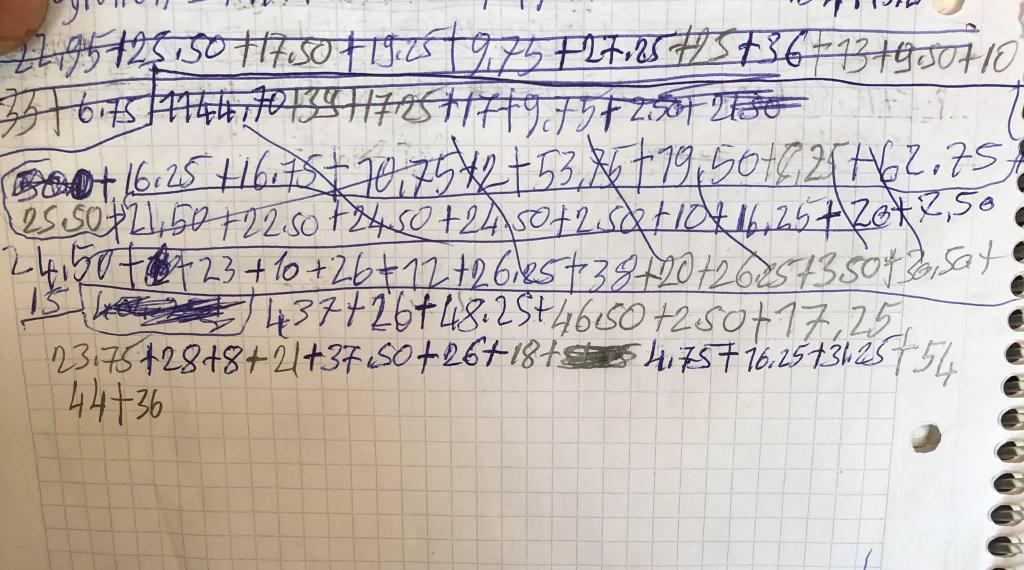 22.95+25.50+17.50+19.25+9.75+27.25+25+36+13+9.50+10
33+6.75+1144,70+39+17.25+17+9.75+2.50+21.50
+16.25+16.75+10,75+12+53,75+19,50+6,25+62.75+
25.50+21,50+22.50+24.50+24.50+2.50+10+16,25+20+7,50
24,50++23+10+26+12+26.25+38+20+26.25+3.50+30,50+
15 4,37+26+48.25+46.50+2.50+17,25
23.75+28+8+21+37.50+26+18+ 4.75+16.25+31.25+54
44+36